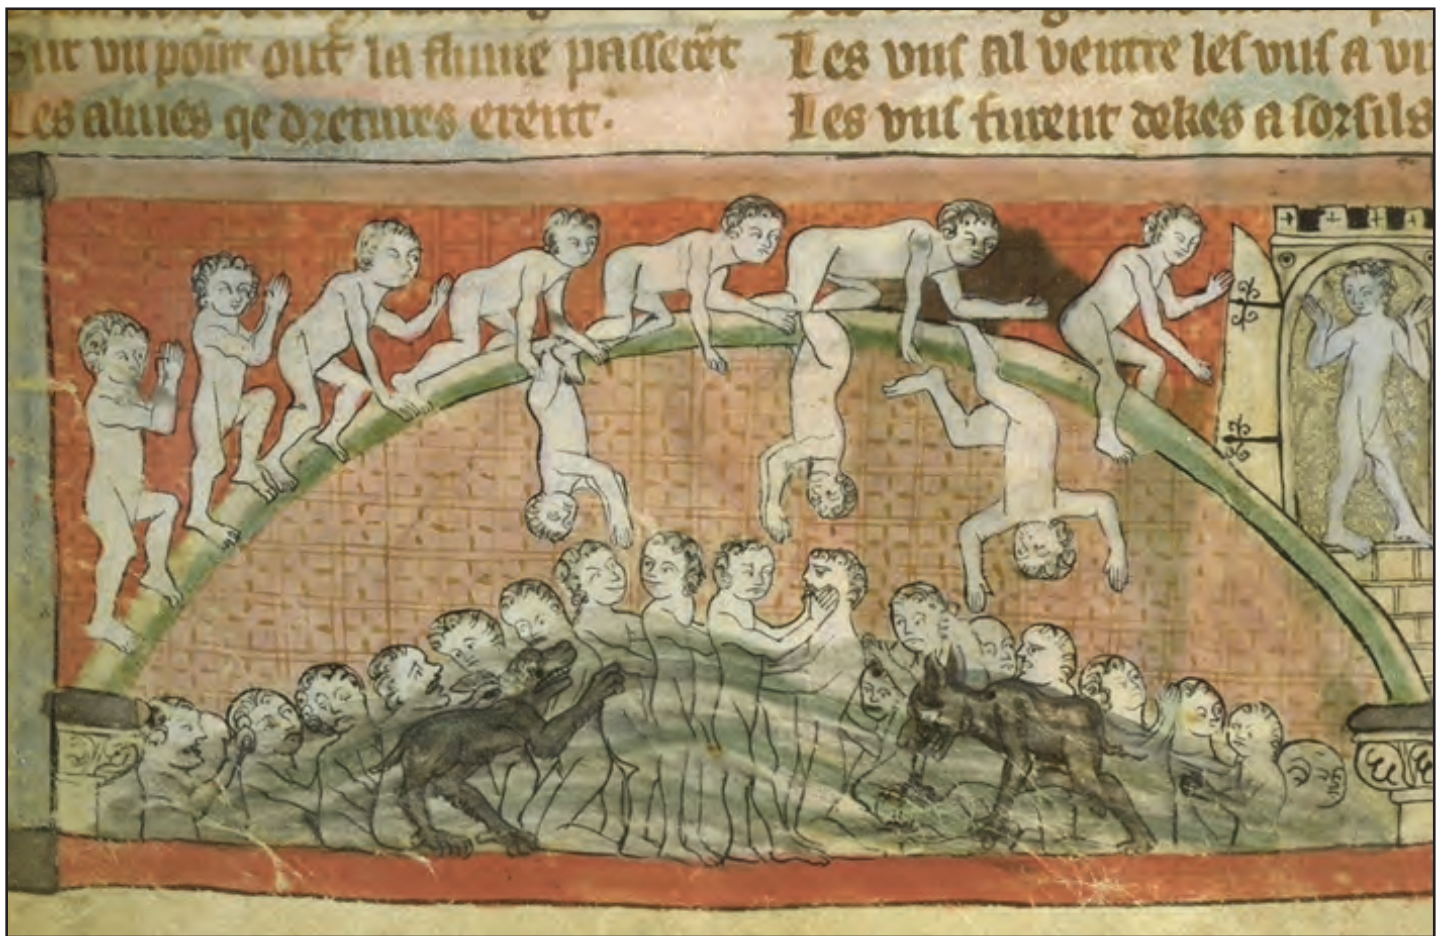 Sur vn poūt out' la flume passerēt
Les almes qe dretures erent.
Les vns al ventre les vns a
Les vns furent dekes a sorsils